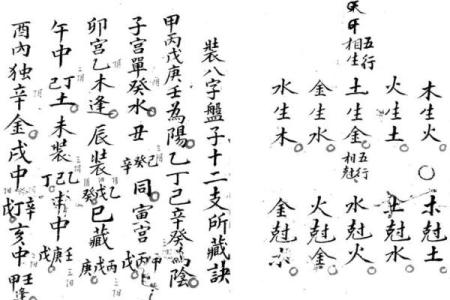 天干相生五行
木生火 木尅土
火生土 土尅水
土生金 五行相尅 水尅火
金生水 火尅金
水生木 金尅木
裝八字盤子十二支所藏訣
甲丙戊庚壬為陽乙丁己辛癸為陰
子宮單癸水丑己癸辛同寅宮丙甲戊
卯宮乙木逢辰裝乙戊癸巳藏丙戊庚
午中己丁土未裝乙己丁申中戊庚壬
酉內独辛金戌中辛丁戊亥中甲壬